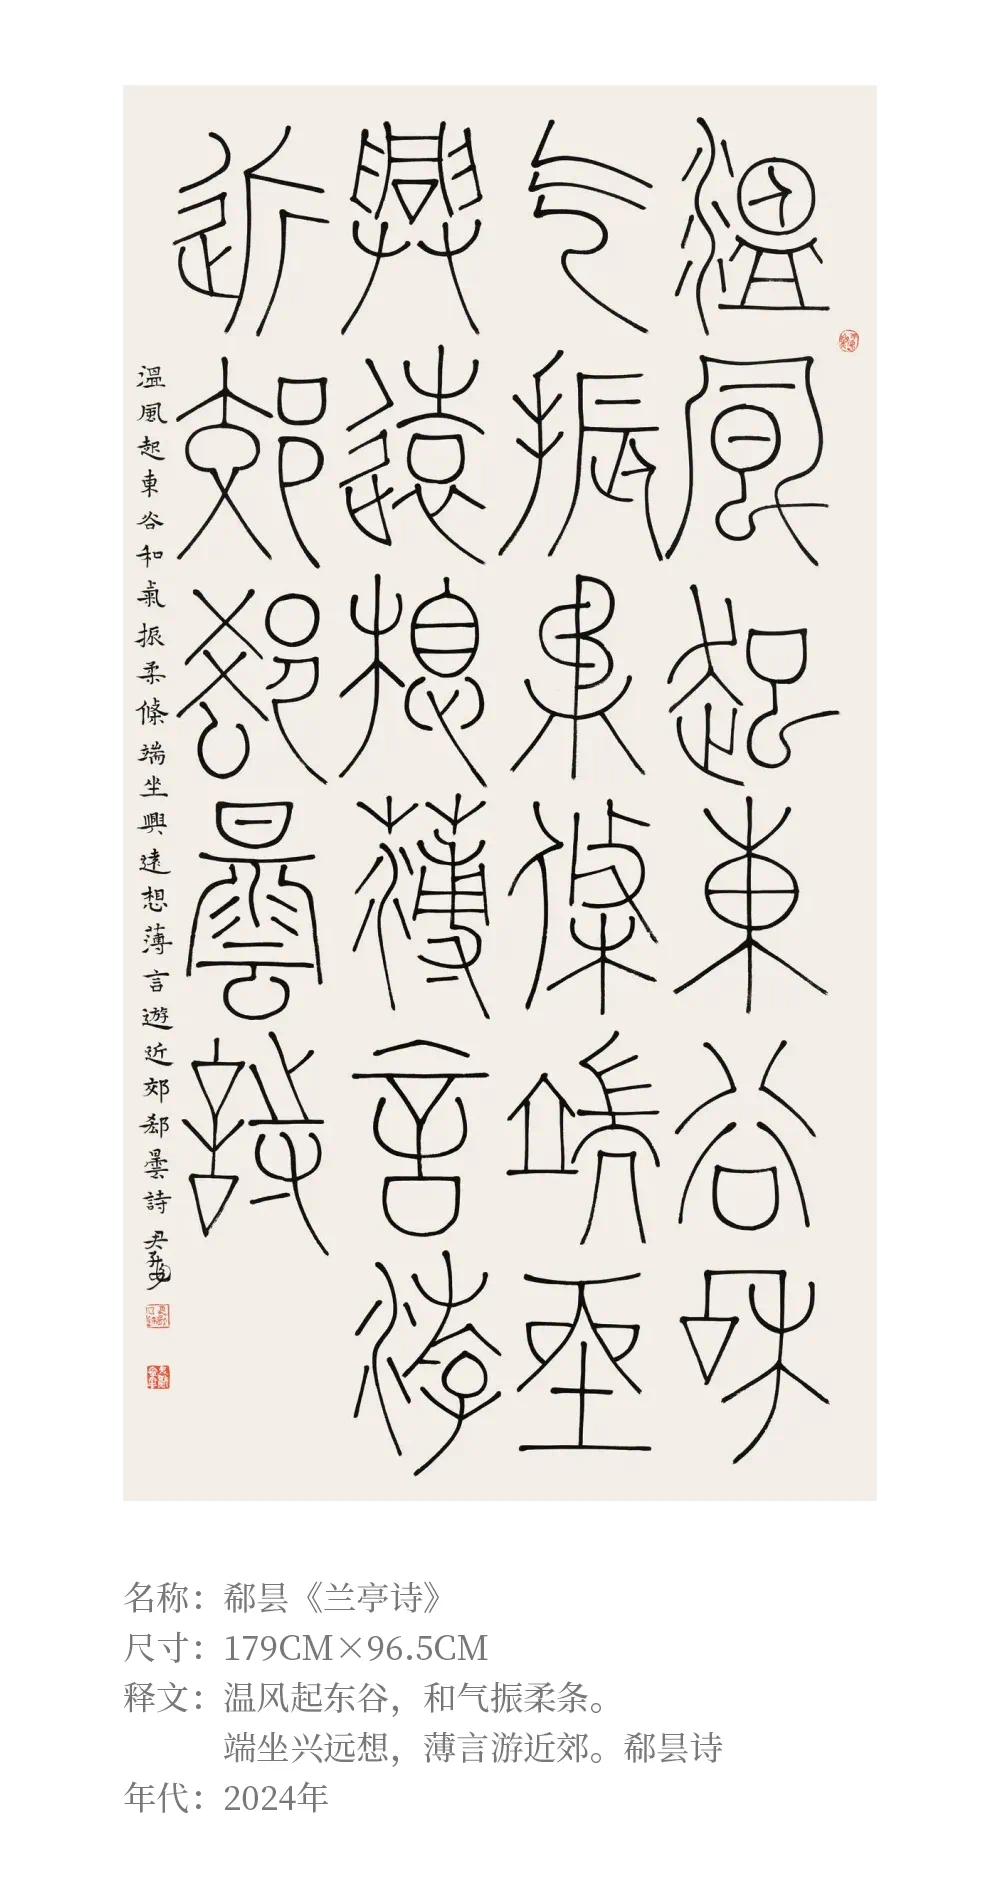 温風起東谷和
气振柔條端坐
興遠想薄言游
近郊郗曇詩
温風起東谷和氣振柔條端坐興遠想薄言遊近郊郗曇詩
名称：郗昙《兰亭诗》
尺寸：179CM×96.5CM
释文：温风起东谷，和气振柔条。
端坐兴远想，薄言游近郊。郗昙诗
年代：2024年